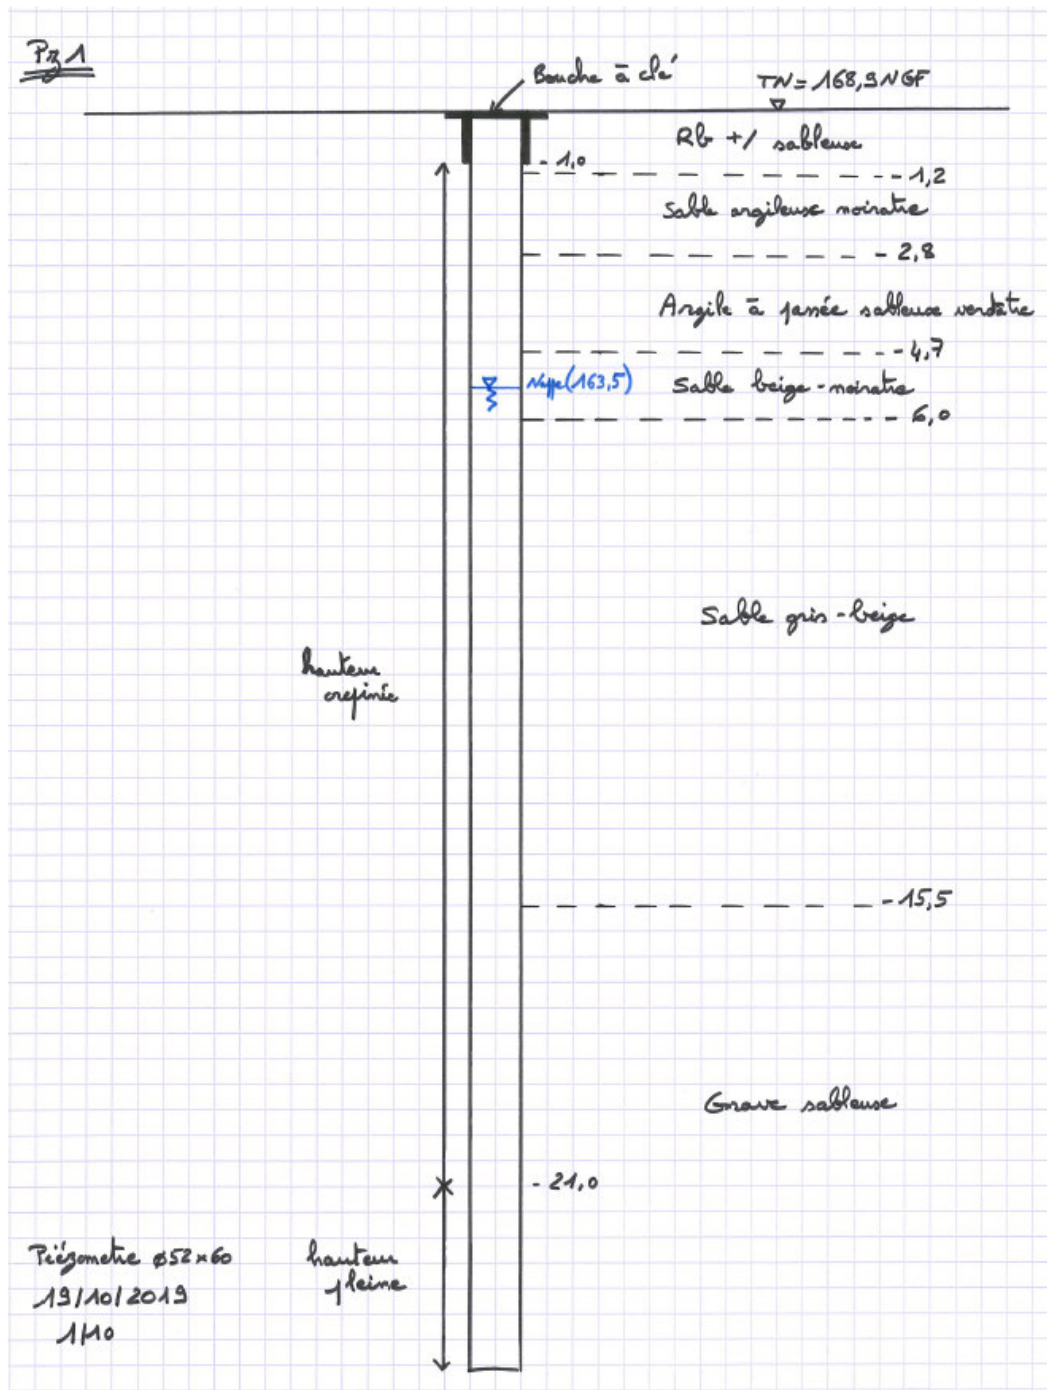 Pz 1
Bouche à clé
TN = 168,9 NGF
Rb +/ sableuse
- 1,0
- 1,2
Sable argileuse noiratre
- 2,8
Argile à passée sableuse verdatre
- 4,7
Nappe (163,5)
Sable beige-noiratre
- 6,0
Sable gris-beige
hauteur
crepinée
- 15,5
Grave sableuse
- 21,0
Piézometre ø52x60
19/10/2019
hauteur
pleine